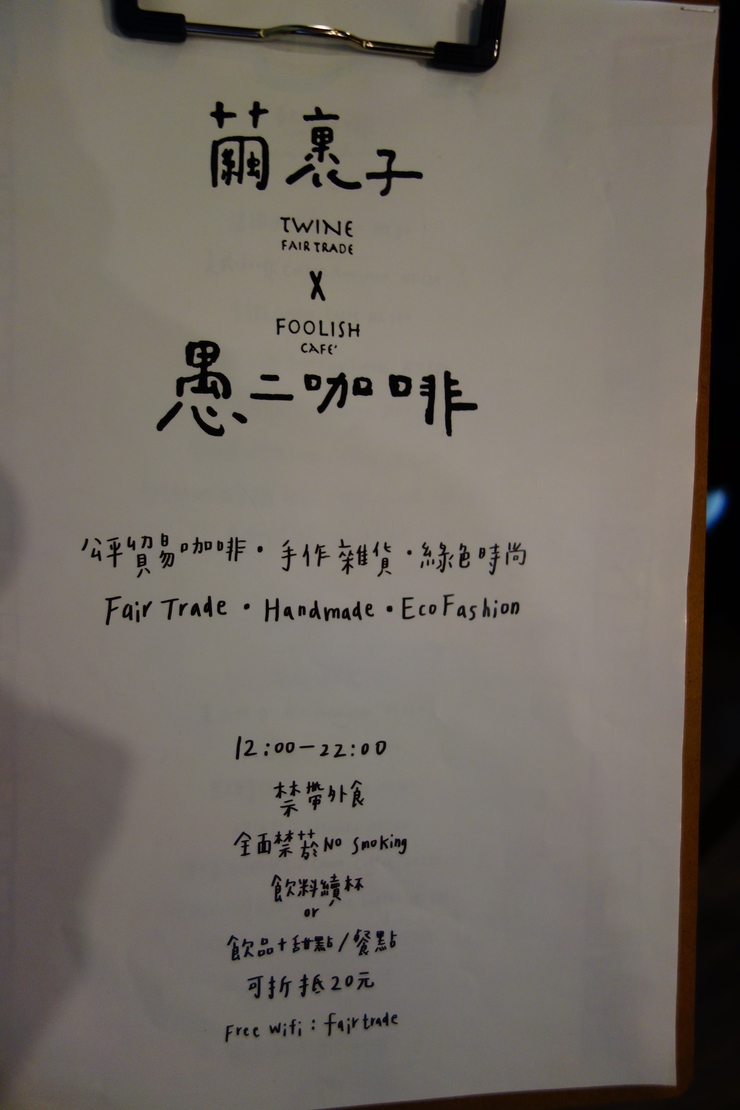 繭裹子
TWINE
FAIR TRADE
X
FOOLISH
CAFE'
愚二咖啡
公平貿易咖啡・手作雜貨・綠色時尚
Fair Trade・Handmade・EcoFashion
12:00-22:00
禁帶外食
全面禁菸 No smoking
飲料續杯
or
飲品+甜點/餐點
可折抵20元
Free Wifi: fairtrade